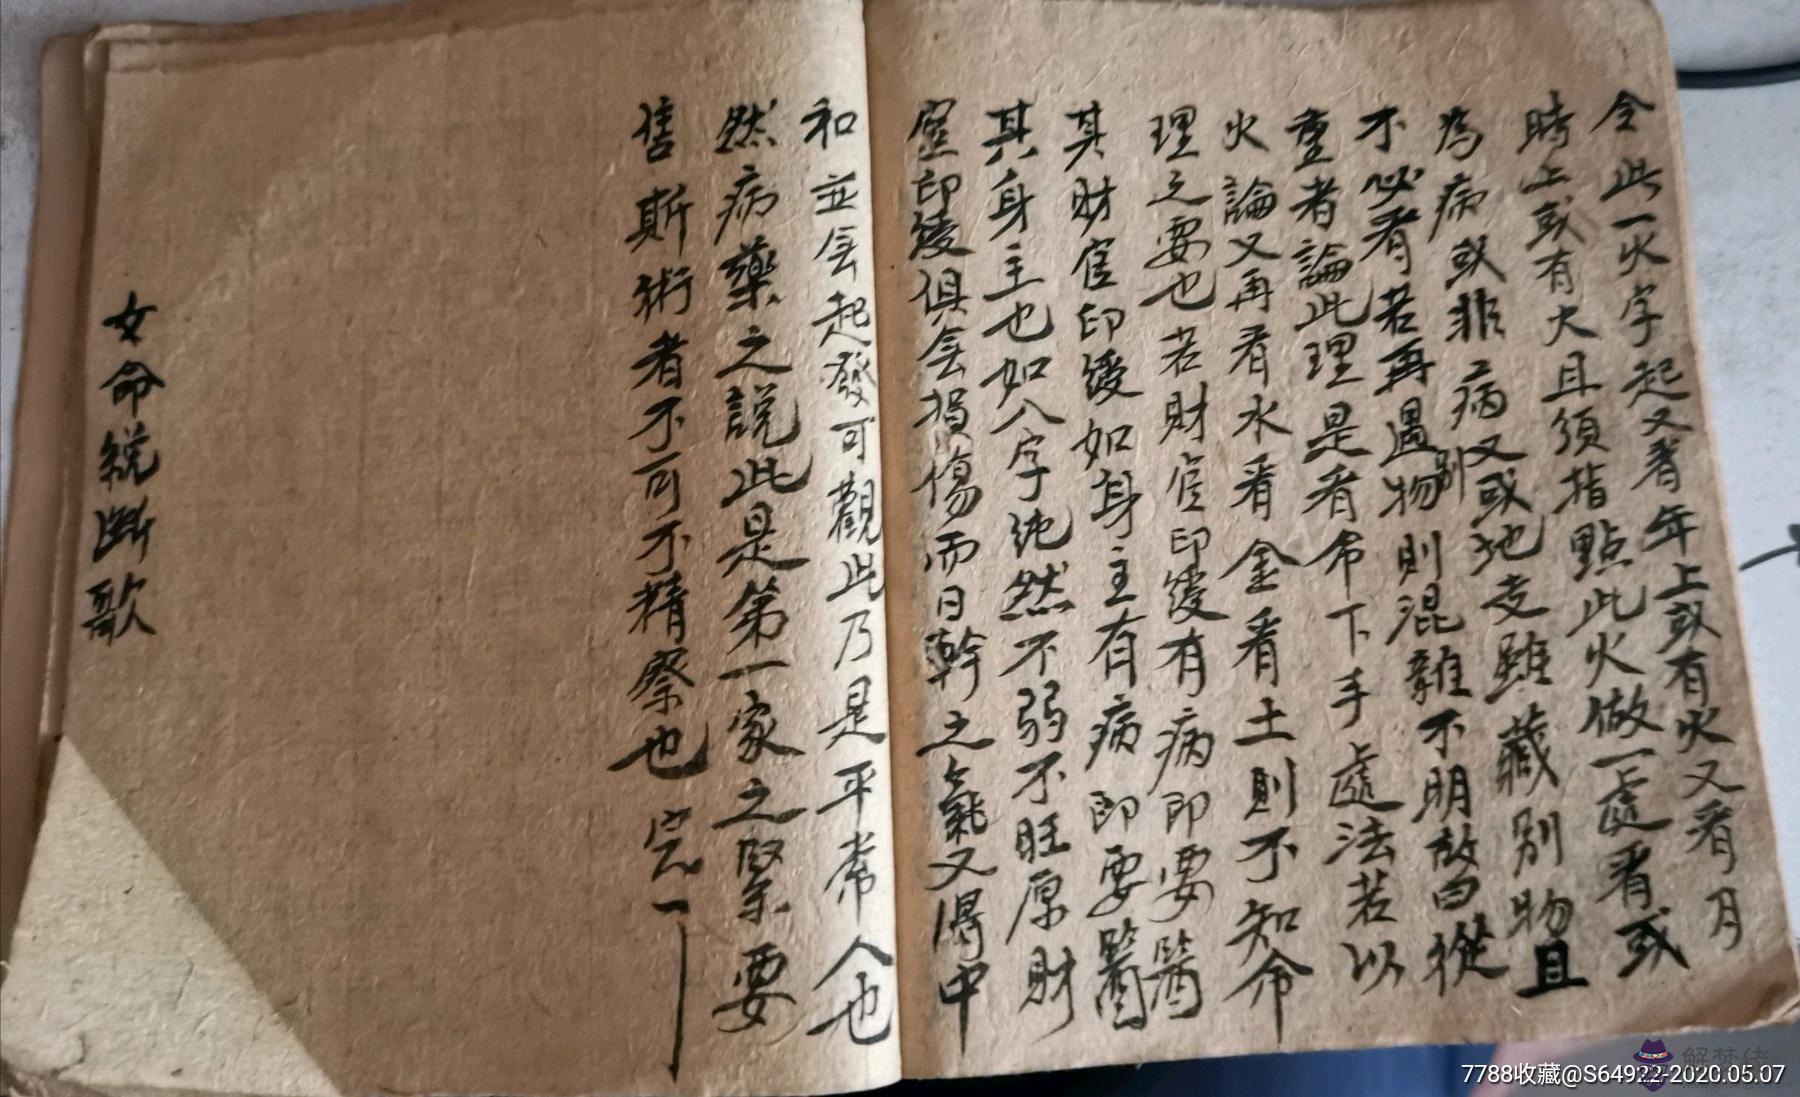 全此一火字起又看年上或有火又看月
時上或有火且須指點此火做一處看或
為病或非病又或地支雖藏別物且
不必看若再遇別物則混雜不明故曰從
重者論此理是看命下手處法若以
火論又再看水看金看土則不知命
理之要也若財官印綬有病即要醫
其財官印綬如身主有病即要醫
其身主也如八字純然不弱不旺原財
官印綬俱無損傷而日幹之氣又得中
和並無起發可觀此乃是平常人也
然病藥之說此是第一家之緊要
售斯術者不可不精察也完
女命總斷歌
7788收藏@S64922-2020.05.07
解梦佬